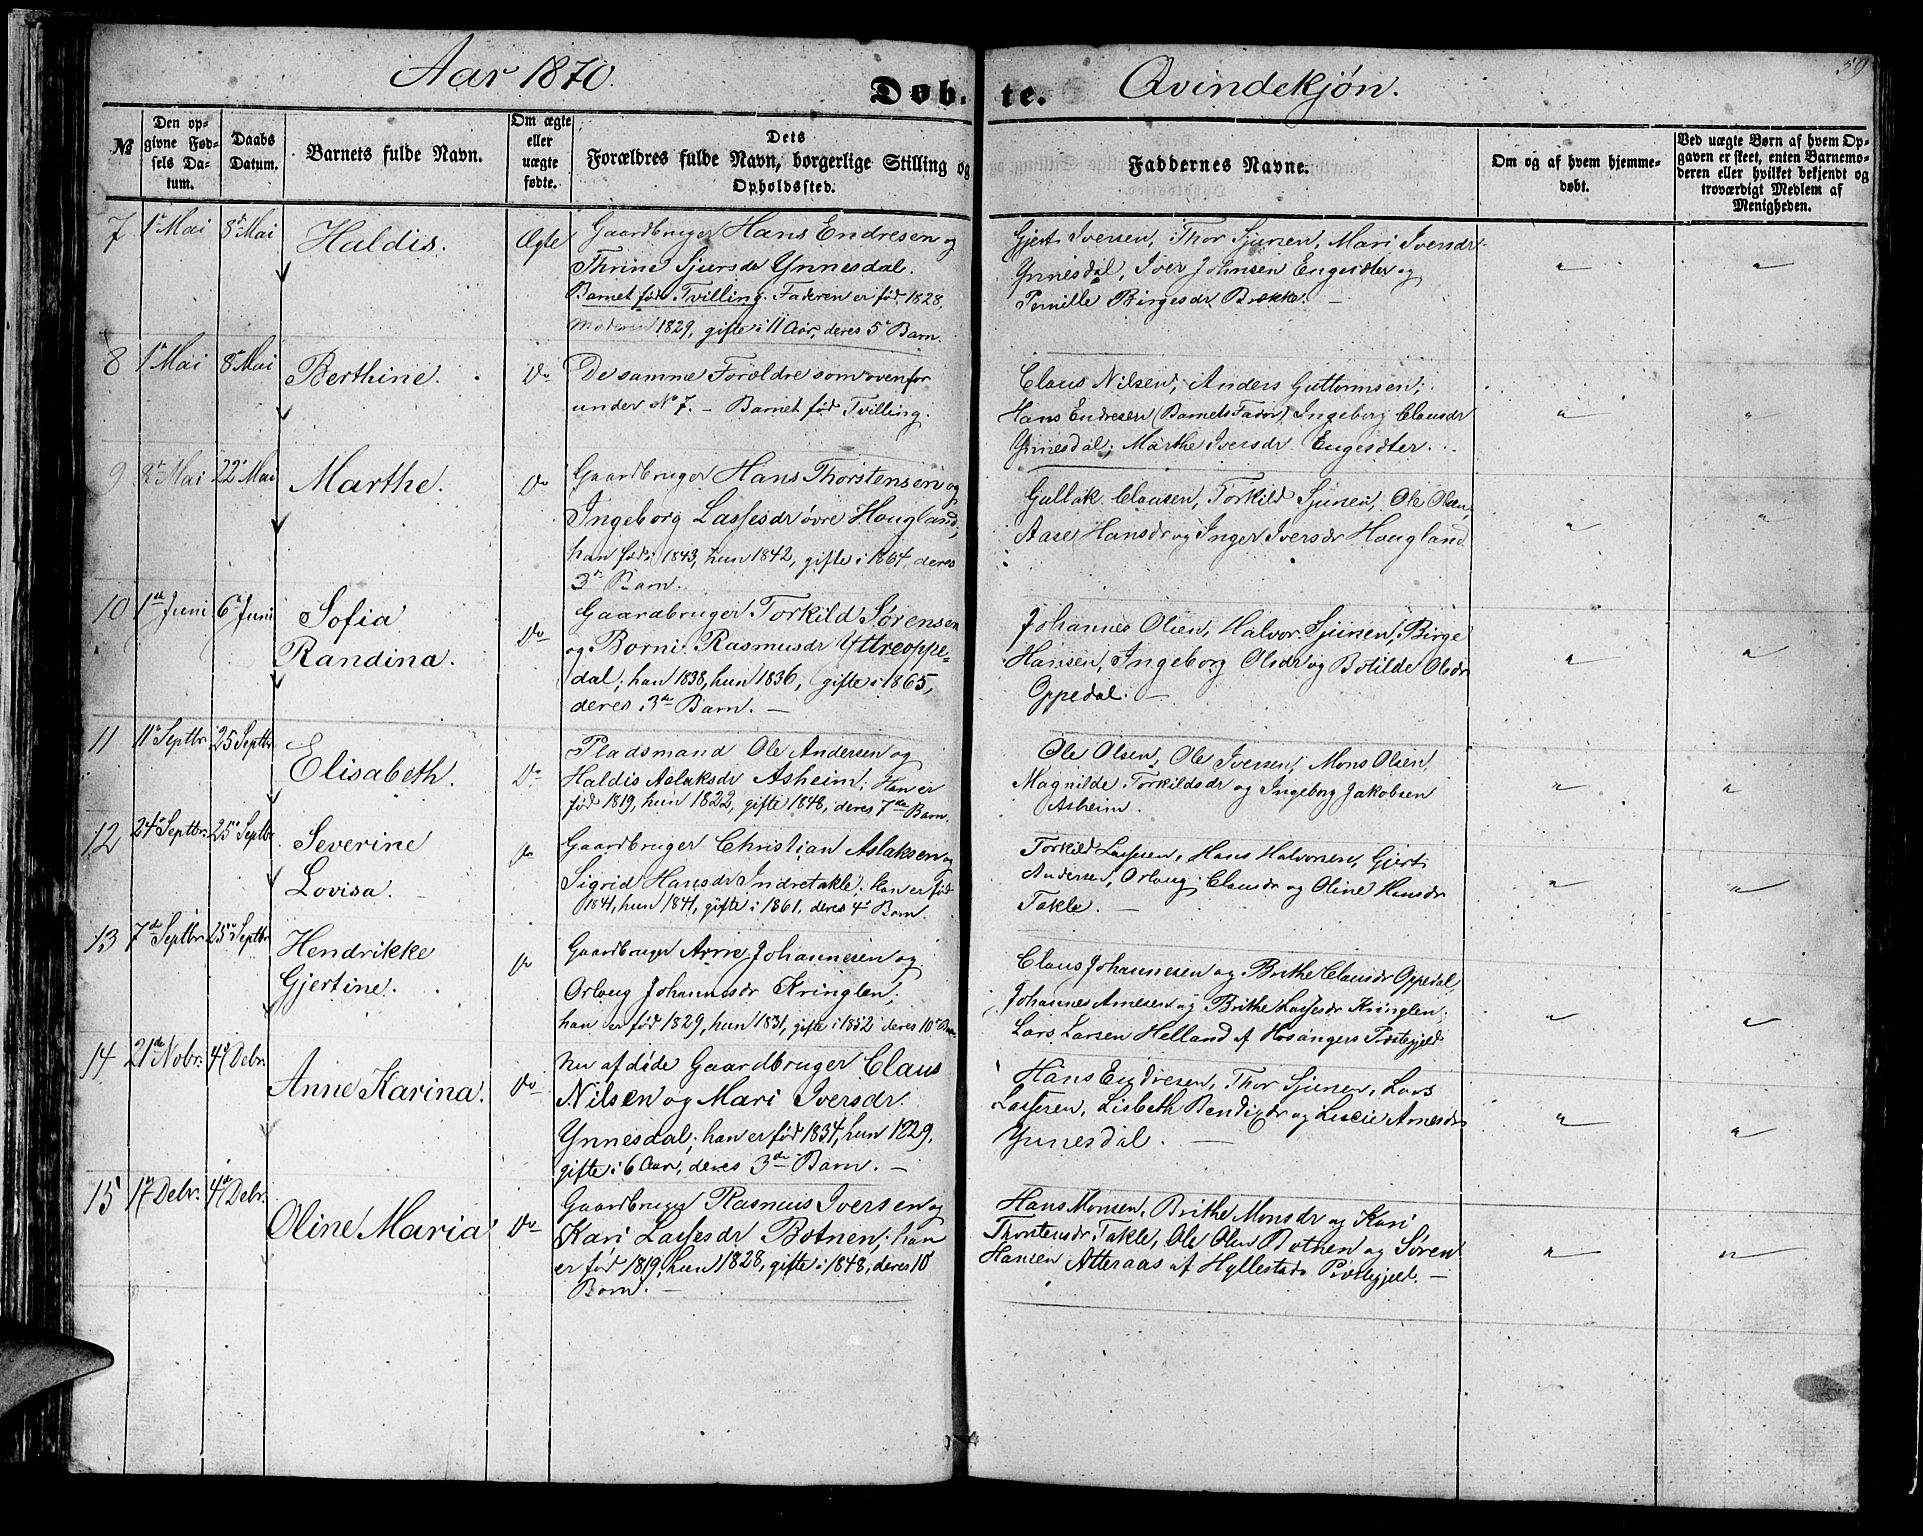 Aar 1870.
Døb-
te.
Qvindekjøn.
59
№
Den op-
givne Fød-
sels Da-
tum.
Daabs
Datum.
Barnets fulde Navn.
Om ægte
eller
uægte
fødte.
Dets
Forældres fulde Navn, borgerlige Stilling og
Opholdssted.
Faddernes Navne.
Om og af hvem hjemme-
døbt.
Ved uægte Børn af hvem Op-
gaven er skeet, enten Barnemo-
deren eller hvilket bekjendt og
troværdigt Medlem af
Menigheden.
7 1ste Mai 8de Mai Haldis. Ægte
Gaardbruger Hans Endresen og
Thrine Sjursdr Ynnesdal.
Barnet født Tvilling. Faderen er fød 1828,
Moderen 1829, gifte i 11 Aar, deres 5te Barn.
Gjert Iversen, Thor Sjursen, Mari Iversdr
Ynnesdal, Iver Johnsen Engesæter og
Pernille Birgesdr Brække. —
8 1ste Mai 8de Mai Berthine. Do
De samme Forældre som ovenfor
under No 7. — Barnet født Tvilling.
Claus Nilsen, Anders Guttormsen,
Hans Endresen (Barnets Fader), Ingeborg Clausdr
Ynnesdal, Marthe Iversdr Engesæter.
9 Mai 22de Mai Marthe. Do
Gaardbruger Hans Thorstensen og
Ingeborg Lassesdr øvre Hougland;
han fød i 1843, hun 1842, gifte i 1864, deres
3die Barn.
Gullak Clausen, Torkild Sjursen, Ole Olsen,
Aase Hansdr og Inger Iversdr Hougland
10 1ste Juni 6te Juni Sofia
Randina. Do
Gaardbruger Torkild Sørensen
og Borni Rasmusdr Yttreoppe-
dal; han 1838, hun 1836, gifte i 1865,
deres 3die Barn. —
Johannes Olsen, Halvor Sjursen, Birge
Hansen, Ingeborg Olsdr og Botilde Olsdr
Oppedal. —
11 11te Septbr 25 Septbr Elisabeth. Do
Pladsmand Ole Andersen og
Haldis Aslaksdr Asheim; Han er
fød 1819, hun 1822, gifte 1848, deres 7de Barn.
Ole Olsen, Ole Iversen, Mons Olsen,
Magnilde Torkildsdr og Ingeborg Jakobsen
Asheim.
12 24de Septbr. 25de Septbr Severine
Lovisa. Do
Gaardbruger Christian Aslaksen og
Sigrid Hansdr Indretakle; han er fød
1841, hun 1841, gifte i 1861, deres 4de Barn.
Torkild Lassesen, Hans Halvorsen, Gjert
Andersen, Orloug Clausdr og Oline Hansdr
Takle. —
13 7de Septbr 25de Septbr Hendrikke
Gjertine. Do
Gaardbruger Arne Johannesen og
Orloug Johannesdr Kringlen;
han er fød 1829, hun 1831, gifte i 1852 deres 10de Barn.
Claus Johannesen og Brithe Clausdr Oppedal,
Johannes Arnesen og Brithe Lassesdr Kringlen,
Lars Larsen Helland af Hosangers Præstegjeld
14 21de Novbr. 4de Debr. Anne Karina. Do
Nu afdøde Gaardbruger Claus
Nilsen og Mari Iversdr
Ynnesdal; han er fød 1834, hun 1829,
gifte i 6 Aar, deres 3die Barn. —
Hans Endresen, Thor Sjursen, Lars
Lassesen, Lisbeth Bendixdr og Arnesdr
Ynnesdal. —
15 17 Debr. 4de Debr. Oline Maria Do
Gaardbruger Rasmus Iversen og
Kari Lassesdr Botnen; han
er fød 1819, hun 1828, gifte i 1848, deres 10
Barn. —
Hans Monsen, Brithe Monsdr og Kari
Thorstensdr Takle, Ole Olsen Bothen og Søren
Hansen Atteraas af Hyllestads Præstegjeld. —